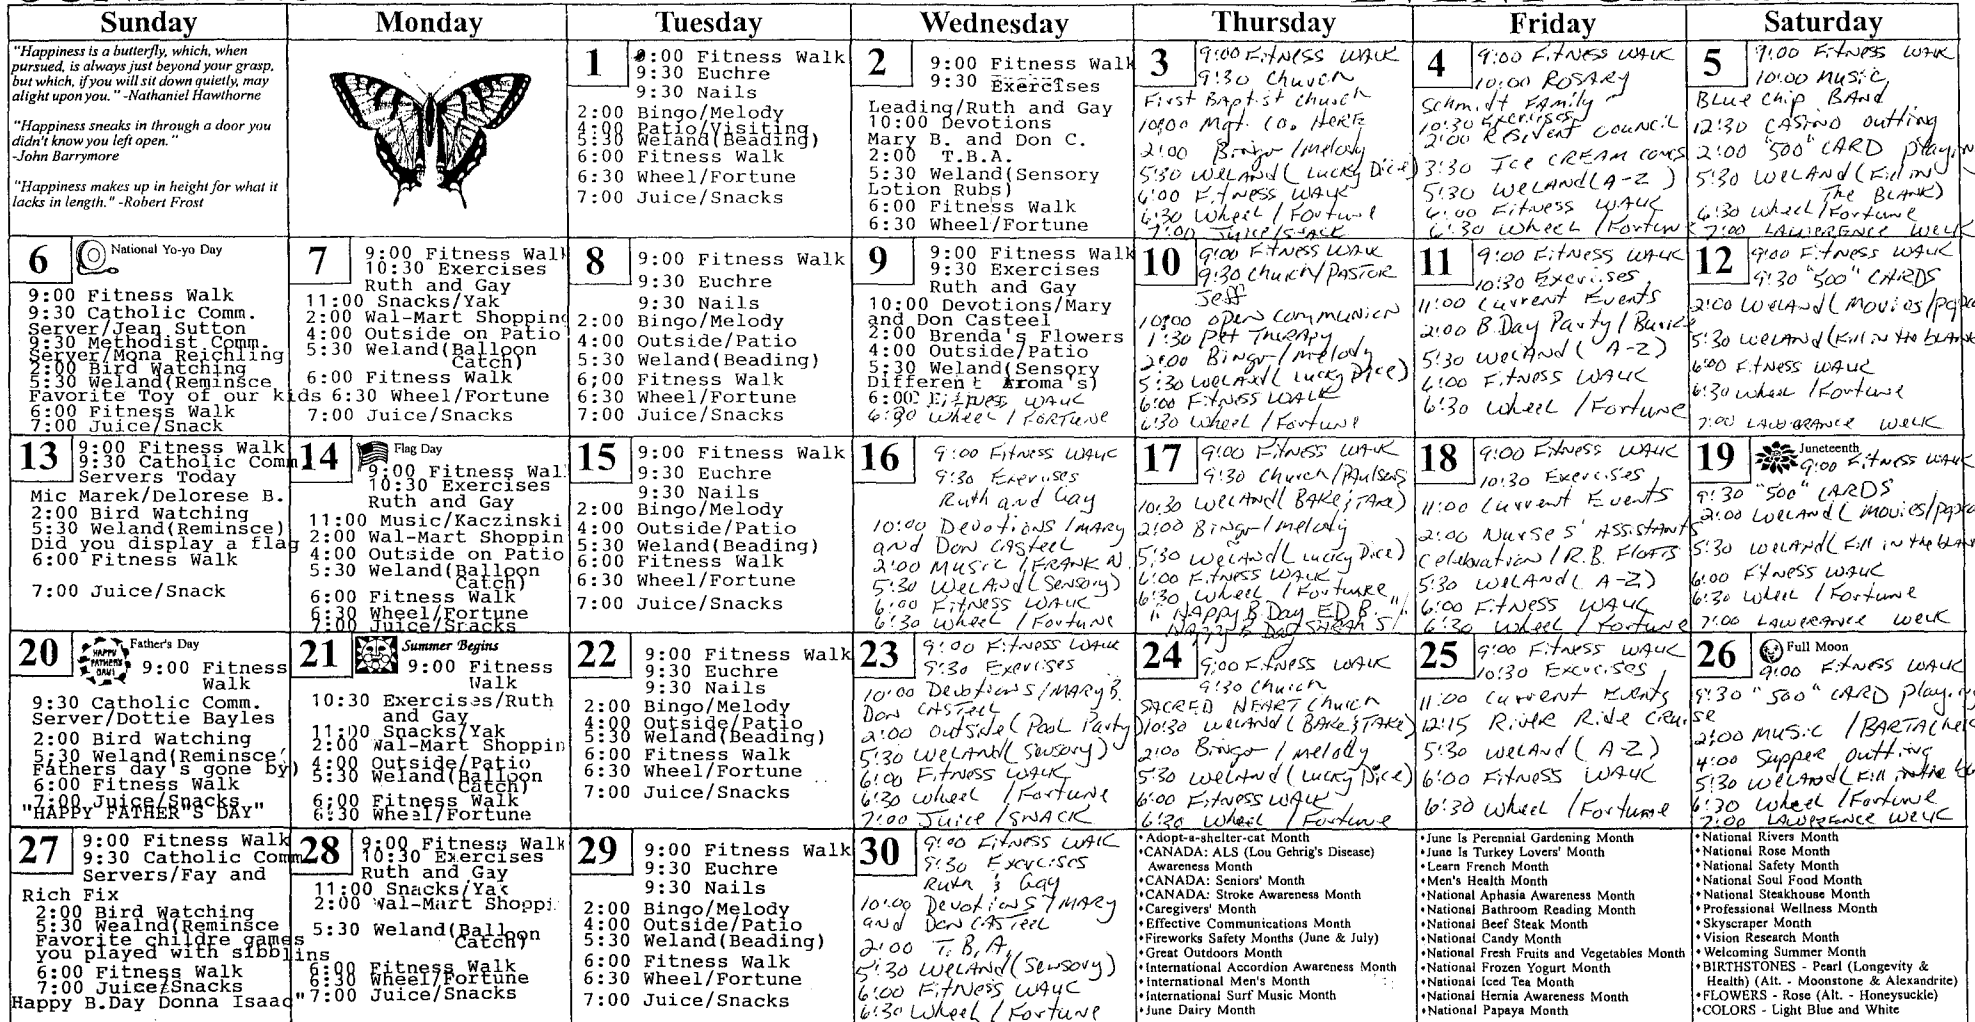 Sunday
Monday
Tuesday
Wednesday
Thursday
Friday
Saturday
"Happiness is a butterfly, which, when
pursued, is always just beyond your grasp,
but which, if you will sit down quietly, may
alight upon you." -Nathaniel Hawthorne
"Happiness sneaks in through a door you
didn't know you left open."
-John Barrymore
"Happiness makes up in height for what it
lacks in length." -Robert Frost
1
9:00 Fitness Walk
9:30 Euchre
9:30 Nails
2:00 Bingo/Melody
4:00 Patio/Visiting
5:30 Weland(Beading)
6:00 Fitness Walk
6:30 Wheel/Fortune
7:00 Juice/Snacks
2
9:00 Fitness Walk
9:30 Exercises
Leading/Ruth and Gay
10:00 Devotions
Mary B. and Don C.
2:00 T.B.A.
5:30 Weland(Sensory
Lotion Rubs)
6:00 Fitness Walk
6:30 Wheel/Fortune
3
9:00 Fitness Walk
9:30 Church
First Baptist Church
10:00 Mgt. Co. HERE
2:00 Bingo/Melody
5:30 WELAND(Lucky Dice)
6:00 Fitness Walk
6:30 Wheel/Fortune
7:00 Juice/Snack
4
9:00 Fitness Walk
10:00 ROSARY
Schmidt Family
10:30 Exercises
2:00 Resident Council
3:30 ICE CREAM cones
5:30 WELAND(A-Z)
6:00 Fitness Walk
6:30 Wheel/Fortune
5
9:00 Fitness Walk
10:00 Music
Blue Chip BAND
12:30 CASINO outting
2:00 "500" CARD playin
5:30 WELAND(Fill in
The BLANK)
6:30 Wheel/Fortune
7:00 LAWERENCE WELK
6
National Yo-yo Day
9:00 Fitness Walk
9:30 Catholic Comm.
Server/Jean Sutton
9:30 Methodist Comm.
Server/Mona Reichling
2:00 Bird Watching
5:30 Weland(Reminsce
Favorite Toy of our kids
6:00 Fitness Walk
7:00 Juice/Snack
7
9:00 Fitness Walk
10:30 Exercises
Ruth and Gay
11:00 Snacks/Yak
2:00 Wal-Mart Shopping
4:00 Outside on Patio
5:30 Weland(Balloon
Catch)
6:00 Fitness Walk
6:30 Wheel/Fortune
7:00 Juice/Snacks
8
9:00 Fitness Walk
9:30 Euchre
9:30 Nails
2:00 Bingo/Melody
4:00 Outside/Patio
5:30 Weland(Beading)
6;00 Fitness Walk
6:30 Wheel/Fortune
7:00 Juice/Snacks
9
9:00 Fitness Walk
9:30 Exercises
Ruth and Gay
10:00 Devotions/Mary
and Don Casteel
2:00 Brenda's Flowers
4:00 Outside/Patio
5:30 Weland(Sensory
Different Aroma's)
6:00 Fitness Walk
6:30 Wheel/FORTUNE
10
9:00 Fitness Walk
9:30 Church/PASTOR
Jeff
10:00 open communion
1:30 Pet Therapy
2:00 Bingo/Melody
5:30 WELAND(Lucky Dice)
6:00 Fitness Walk
6:30 Wheel/Fortune
11
9:00 Fitness Walk
10:30 Exercises
11:00 Current Events
2:00 B.Day Party/
5:30 WELAND(A-Z)
6:00 Fitness Walk
6:30 Wheel/Fortune
12
9:00 Fitness Walk
9:30 "500" CARDS
2:00 WELAND(Movies/popco
5:30 WELAND(Fill in the blank
6:00 Fitness Walk
6:30 Wheel/Fortune
7:00 LAWERANCE WELK
13
9:00 Fitness Walk
9:30 Catholic Comm
Servers Today
Mic Marek/Delorese B.
2:00 Bird Watching
5:30 Weland(Reminsce)
Did you display a flag
6:00 Fitness Walk
7:00 Juice/Snack
14
Flag Day
9:00 Fitness Wal
10:30 Exercises
Ruth and Gay
11:00 Music/Kaczinski
2:00 Wal-Mart Shoppin
4:00 Outside on Patio
5:30 Weland(Balloon
Catch)
6:00 Fitness Walk
6:30 Wheel/Fortune
7:00 Juice/Snacks
15
9:00 Fitness Walk
9:30 Euchre
9:30 Nails
2:00 Bingo/Melody
4:00 Outside/Patio
5:30 Weland(Beading)
6:00 Fitness Walk
6:30 Wheel/Fortune
7:00 Juice/Snacks
16
9:00 Fitness Walk
9:30 Exercises
Ruth and Gay
10:00 Devotions/MARY
and Don CASTEEL
2:00 MUSIC/FRANK N.
5:30 WELAND(Sensory)
6:00 Fitness Walk
6:30 Wheel/Fortune
17
9:00 Fitness Walk
9:30 Church/Paulsens
10:30 WELAND(BAKE;TAKE)
2:00 Bingo/Melody
5:30 WELAND(Lucky Dice)
6:00 Fitness Walk
6:30 Wheel/Fortune
"Happy B.Day ED B."
Happy B Day SARAH S!
18
9:00 Fitness Walk
10:30 Exercises
11:00 Current Events
2:00 Nurse's' Assistants
Celebration/R.B. Floats
5:30 WELAND(A-Z)
6:00 Fitness Walk
6:30 Wheel/Fortune
19
Juneteenth
9:00 Fitness Walk
9:30 "500" CARDS
2:00 WELAND(movies/popco
5:30 WELAND(Fill in the blank
6:00 Fitness Walk
6:30 Wheel/Fortune
7:00 LAWERANCE Welk
20
Father's Day
HAPPY FATHER'S DAY!
9:00 Fitness
Walk
9:30 Catholic Comm.
Server/Dottie Bayles
2:00 Bird Watching
5;30 Weland(Reminsce
Fathers day s gone by)
6:00 Fitness Walk
7:00 Juice/Snacks
"HAPPY FATHER"S DAY"
21
Summer Begins
9:00 Fitness
Walk
10:30 Exercises/Ruth
and Gay
11:00 Snacks/Yak
2:00 Wal-Mart Shoppin
4:00 Outside/Patio
5:30 Weland(Balloon
Catch)
6:00 Fitness Walk
6:30 Wheel/Fortune
22
9:00 Fitness Walk
9:30 Euchre
9:30 Nails
2:00 Bingo/Melody
4:00 Outside/Patio
5:30 Weland(Beading)
6:00 Fitness Walk
6:30 Wheel/Fortune
7:00 Juice/Snacks
23
9:00 Fitness Walk
9:30 Exercises
10:00 Devotions/MARY B.
Don CASTEEL
2:00 Outside(Pool Party
5:30 WELAND(Sensory)
6:00 Fitness Walk
6:30 Wheel/Fortune
7:00 Juice/SNACK
24
9:00 Fitness Walk
9:30 Church
SACRED HEART Church
10:30 WELAND(BAKE;TAKE)
2:00 Bingo/Melody
5:30 WELAND(Lucky Dice)
6:00 Fitness Walk
6:30 Wheel/Fortune
25
9:00 Fitness Walk
10:30 Exercises
11:00 Current Events
12:15 River Ride Crui
se
5:30 WELAND(A-Z)
6:00 Fitness Walk
6:30 Wheel/Fortune
26
Full Moon
9:00 Fitness Walk
9:30 "500" CARD playing
2:00 MUSIC/
4:00 Supper outting
5:30 WELAND(Fill in the
6:30 Wheel/Fortune
7:00 LAWERENCE Welk
27
9:00 Fitness Walk
9:30 Catholic Comm
Servers/Fay and
Rich Fix
2:00 Bird Watching
5:30 Wealnd(Reminsce
Favorite childre games
you played with sibblins
6:00 Fitness Walk
7:00 Juice/Snacks
Happy B.Day Donna Isaac"
28
9:00 Fitness Walk
10:30 Exercises
Ruth and Gay
11:00 Snacks/Yak
2:00 Wal-Mart Shoppi
5:30 Weland(Balloon
Catch)
6:00 Fitness Walk
6:30 Wheel/Fortune
7:00 Juice/Snacks
29
9:00 Fitness Walk
9:30 Euchre
9:30 Nails
2:00 Bingo/Melody
4:00 Outside/Patio
5:30 Weland(Beading)
6:00 Fitness Walk
6:30 Wheel/Fortune
7:00 Juice/Snacks
30
9:00 Fitness Walk
9:30 Exercises
Ruth & Gay
10:00 Devotions/MARY
and Don CASTEEL
2:00 T.B.A.
5:30 WELAND(Sensory)
6:00 Fitness Walk
6:30 Wheel/Fortune
•Adopt-a-shelter-cat Month
•CANADA: ALS (Lou Gehrig's Disease)
Awareness Month
•CANADA: Seniors' Month
•CANADA: Stroke Awareness Month
•Caregivers' Month
•Effective Communications Month
•Fireworks Safety Months (June & July)
•Great Outdoors Month
•International Accordion Awareness Month
•International Men's Month
•International Surf Music Month
•June Dairy Month
•June Is Perennial Gardening Month
•June Is Turkey Lovers' Month
•Learn French Month
•Men's Health Month
•National Aphasia Awareness Month
•National Bathroom Reading Month
•National Beef Steak Month
•National Candy Month
•National Fresh Fruits and Vegetables Month
•National Frozen Yogurt Month
•National Iced Tea Month
•National Hernia Awareness Month
•National Papaya Month
•National Rivers Month
•National Rose Month
•National Safety Month
•National Soul Food Month
•National Steakhouse Month
•Professional Wellness Month
•Skyscraper Month
•Vision Research Month
•Welcoming Summer Month
•BIRTHSTONES - Pearl (Longevity &
Health) (Alt. - Moonstone & Alexandrite)
•FLOWERS - Rose (Alt. - Honeysuckle)
•COLORS - Light Blue and White